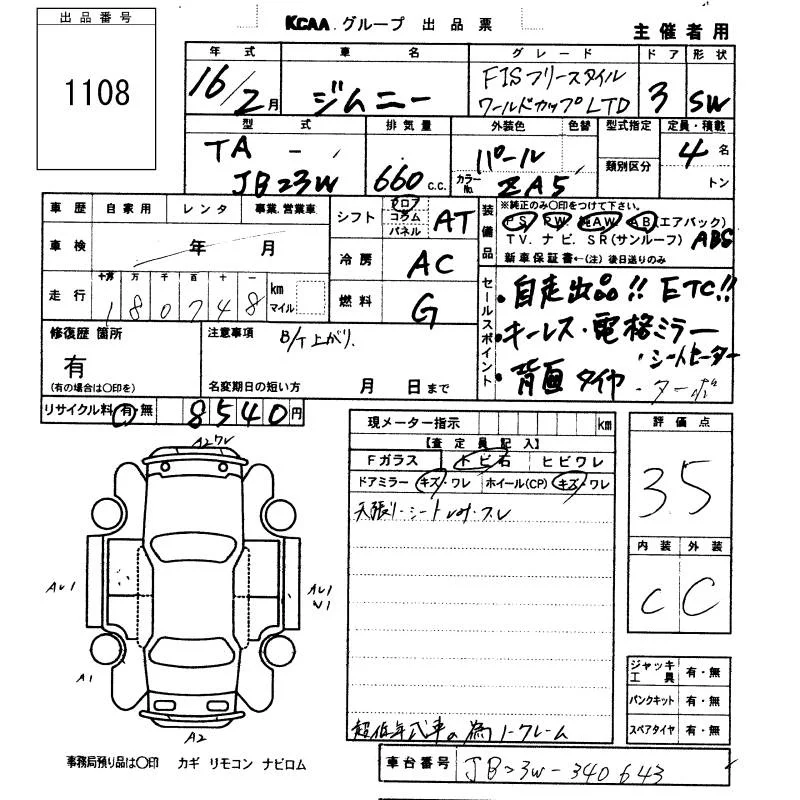 出品番号
1108
KCAA グループ 出品票
主催者用
年式 車名 グレード ドア 形状
16/2月 ジムニー FISフリースタイル
ワールドカップLTD 3 SW
型式 排気量 外装色 色替 型式指定 定員・積載
TA - パール 4名
類別区分
JB23W 660 c.c. カラーNo. ZA5 トン
車歴 自家用 レンタ 事業.営業車
シフト フロア コラム パネル AT
装備品
※純正のみ〇印をつけて下さい。
PS PW 純AW AB(エアバック)
TV. ナビ. SR(サンルーフ) ABS
新車保証書←(注) 後日送りのみ
車検 年 月
冷房 AC
十万 万 千 百 十 一
走行 180748 km マイル
燃料 G
セールスポイント
・自走出品!! ETC!!
・キーレス・電格ミラー
・シートヒーター
・背面タイヤ ・ターボ
修復歴 箇所
有
(有の場合は〇印を)
注意事項 B/T上がり.
名変期日の短い方 月 日まで
リサイクル料 有・無 8540円
現メーター指示 km
【査定員記入】
Fガラス トビ石 ヒビワレ
ドアミラー キズ・ワレ ホイール(CP) キズ・ワレ
天張り・シート
超低年式車の為ノークレーム
評価点
3.5
内装 外装
C C
ジャッキ 工具 有・無
パンクキット 有・無
スペアタイヤ 有・無
AU1
AU1
W1
A1
A2
事務局預り品は〇印 カギ リモコン ナビロム
車台番号 JB23W-340643